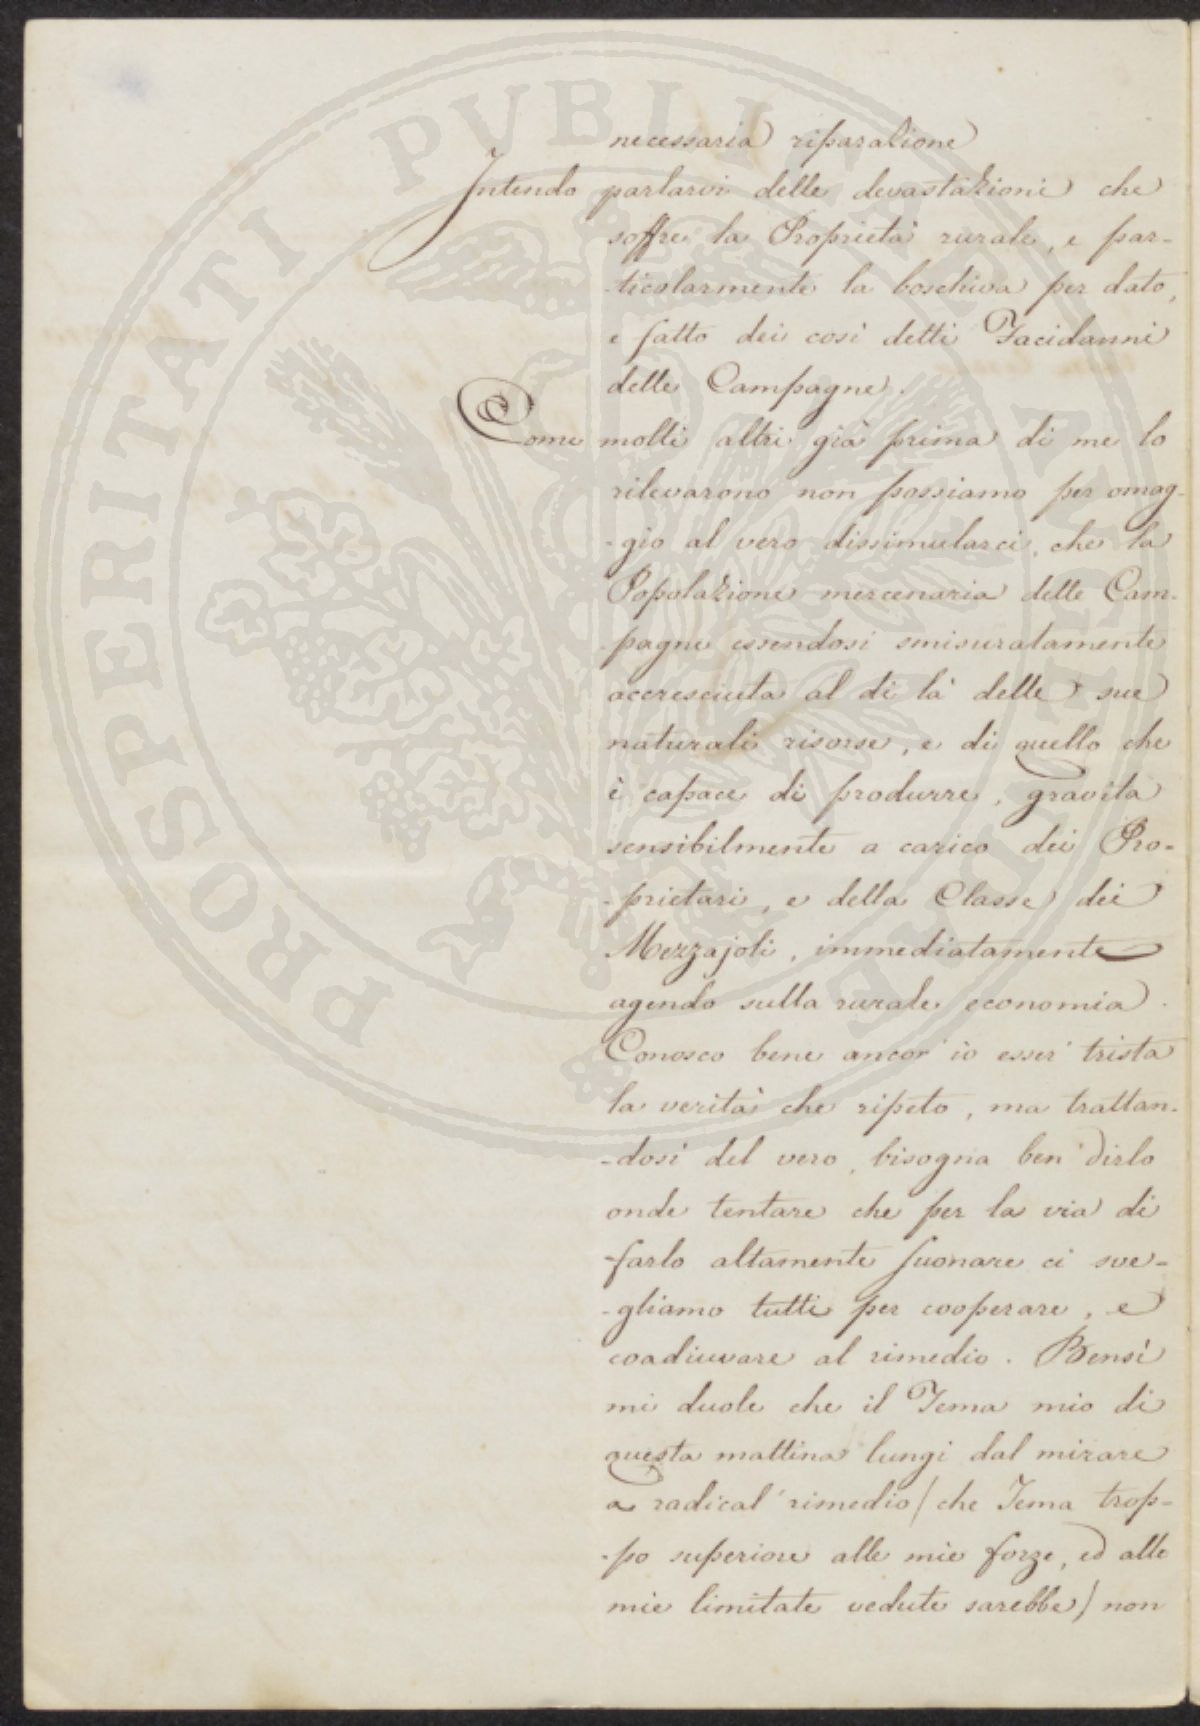 necessaria riparazione
Intendo parlarvi delle devastazioni che
soffre la Proprietà rurale, e par-
-ticolarmente la boschiva per dato,
e fatto dei così detti Facidanni
delle Campagne.
Come molti altri già prima di me lo
rilevarono non possiamo per omag-
-gio al vero dissimularci, che la
Popolazione mercenaria delle Cam-
-pagne essendosi smisuratamente
accresciuta al di là delle sue
naturali risorse, e di quello che
è capace di produrre, gravita
sensibilmente a carico dei Pro-
-prietari, e della Classe dei
Mezzajoli, immediatamente
agendo sulla rurale economia.
Conosco bene ancor' io esser' trista
la verità che ripeto, ma trattan-
-dosi del vero, bisogna ben' dirlo
onde tentare che per la via di
farlo altamente suonare ci sve-
-gliamo tutti per cooperare, e
coadiuvare al rimedio. Bensì
mi duole che il Tema mio di
questa mattina lungi dal mirare
a radical' rimedio / che Tema trop-
-po superiore alle mie forze, ed alle
mie limitate vedute sarebbe / non
PROSPERITATI PUBLICAE AUGENDAE